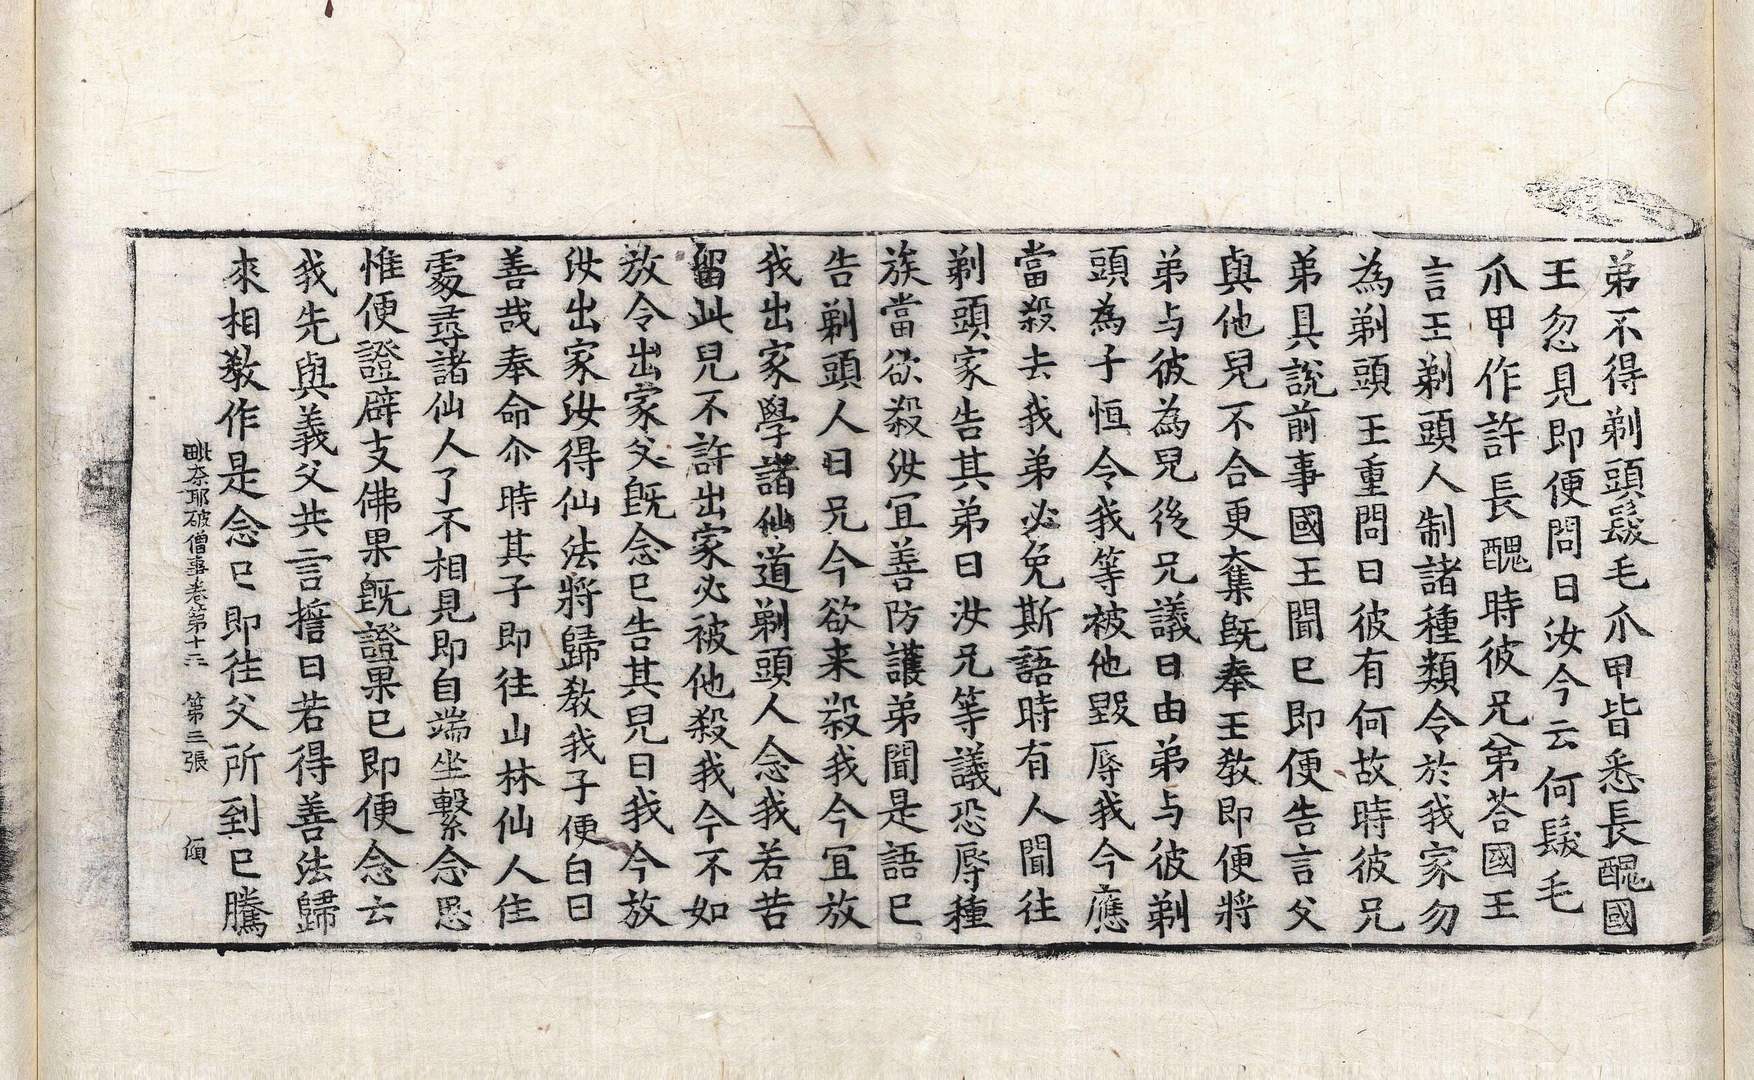 弟不得剃頭髮毛爪甲皆悉長醜國
王忽見即便問曰汝今云何髮毛
爪甲作許長醜時彼兄弟荅國王
言王剃頭人制諸種類令於我家勿
為剃頭王重問曰彼有何故時彼兄
弟具說前事國王聞已即便告言父
與他兒不合更奪旣奉王教即便將
弟与彼為兒後兄議曰由弟与彼剃
頭為子恒令我等被他毀辱我今應
當殺去我弟必免斯語時有人聞往
剃頭家告其弟曰汝兄等議恐辱種
族當欲殺汝宜善防護弟聞是語已
告剃頭人曰兄今欲来殺我今宜放
我出家學諸仙道剃頭人念我若苦
留此兒不許出家必被他殺我今不如
放令出家父旣念已告其兒曰我今放
汝出家汝得仙法將歸教我子便白曰
善哉奉命尒時其子即往山林仙人住
處尋諸仙人了不相見即自端坐繫念思
惟便證辟支佛果旣證果已即便念云
我先與義父共言擔曰若得善法歸
來相教作是念已即往父所到已騰
毗奈耶破僧事卷第十三 第三張 傾